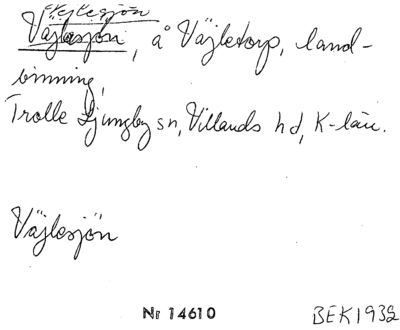 Vejlesjön
Väjlesjön, å Väjletorp, land-
vinning,
Trolle Ljungby sn, Villands hd, K-län.
Väjlesjön
Nr 14610
BEK1932